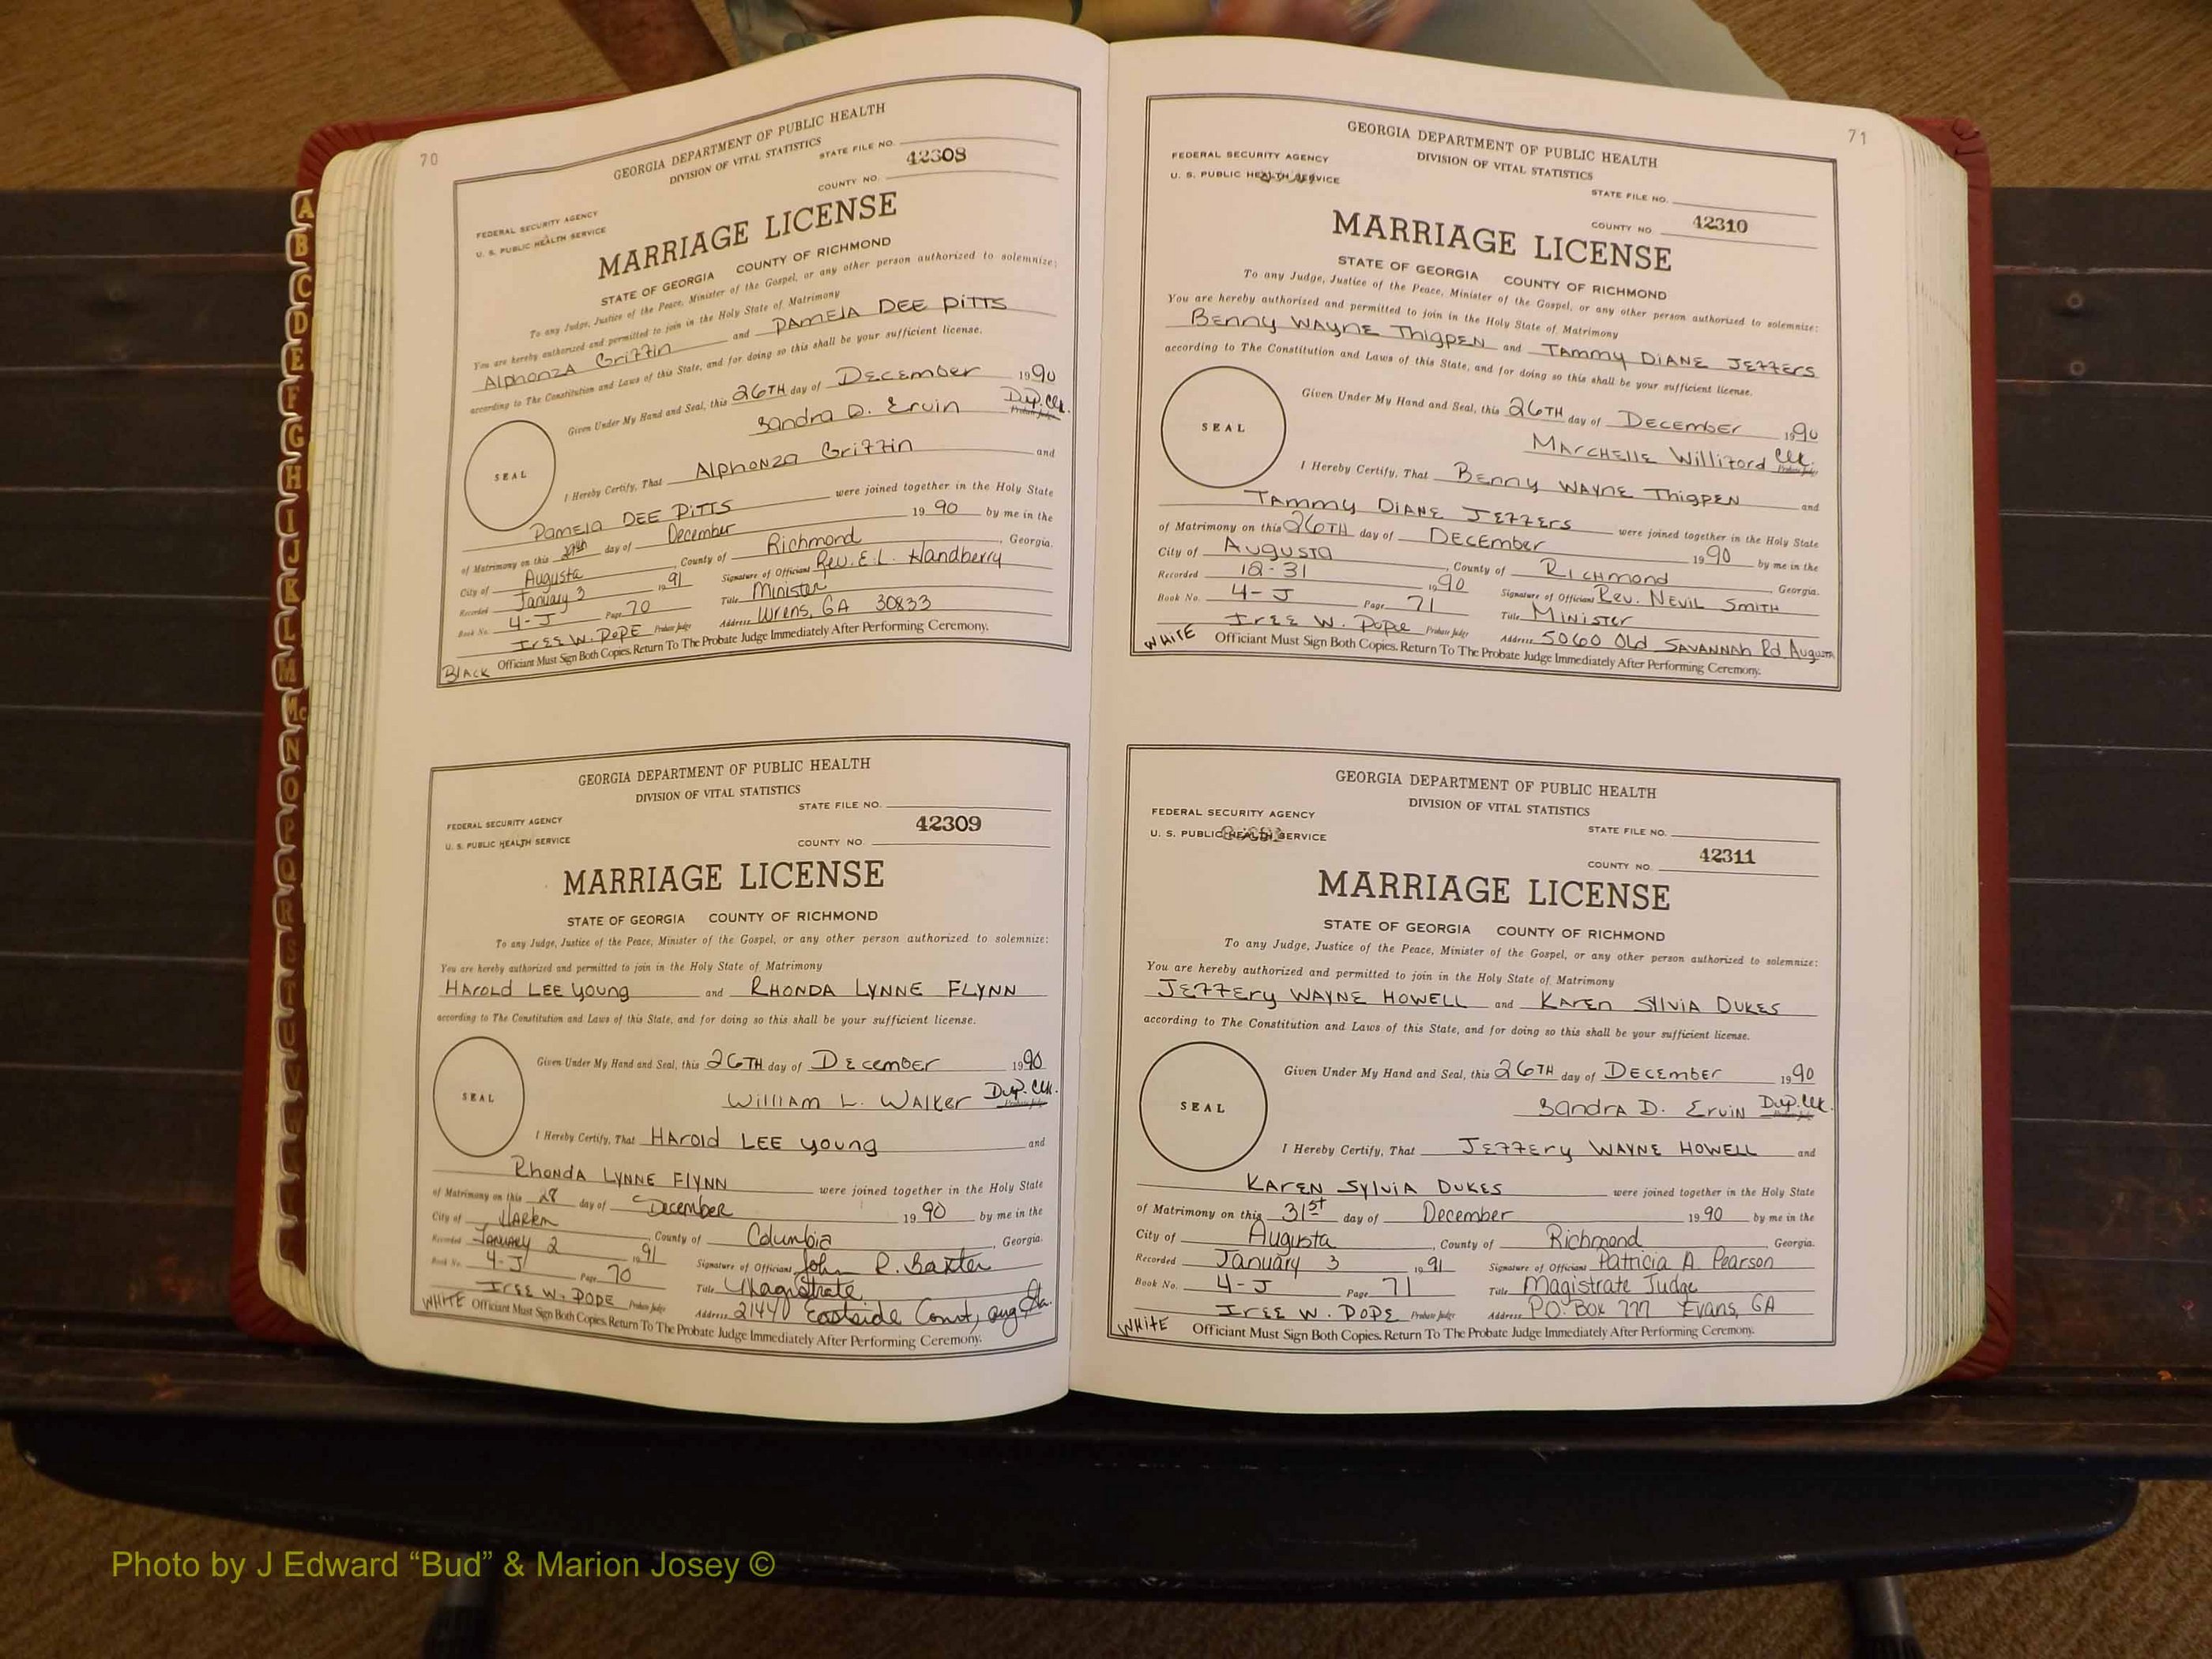 70
GEORGIA DEPARTMENT OF PUBLIC HEALTH
DIVISION OF VITAL STATISTICS
STATE FILE NO.
42308
COUNTY NO.
FEDERAL SECURITY AGENCY
U. S. PUBLIC HEALTH SERVICE
MARRIAGE LICENSE
STATE OF GEORGIA COUNTY OF RICHMOND
To any Judge, Justice of the Peace, Minister of the Gospel, or any other person authorized to solemnize:
You are hereby authorized and permitted to join in the Holy State of Matrimony
Alphonza Griffin and PAMELA DEE PITTS
according to The Constitution and Laws of this State, and for doing so this shall be your sufficient license.
Given Under My Hand and Seal, this 26TH day of December 1990
Sandra D. Ervin Dep. Clk. Probate Judge
SEAL
I Hereby Certify, That Alphonza Griffin and
Pamela DEE PITTS were joined together in the Holy State
of Matrimony on this day of December 19 90 by me in the
City of Augusta, County of Richmond, Georgia.
Recorded January 3 1991 Signature of Officiant Rev. E.L. Handberry
Book No. 4-J Page 70 Title Minister
Iree W. POPE Probate Judge Address Wrens, GA 30833
BLACK Officiant Must Sign Both Copies. Return To The Probate Judge Immediately After Performing Ceremony.
GEORGIA DEPARTMENT OF PUBLIC HEALTH
DIVISION OF VITAL STATISTICS
STATE FILE NO.
FEDERAL SECURITY AGENCY
42309
U. S. PUBLIC HEALTH SERVICE
COUNTY NO.
MARRIAGE LICENSE
STATE OF GEORGIA COUNTY OF RICHMOND
To any Judge, Justice of the Peace, Minister of the Gospel, or any other person authorized to solemnize:
You are hereby authorized and permitted to join in the Holy State of Matrimony
Harold LEE Young and RHONDA LYNNE FLYNN
according to The Constitution and Laws of this State, and for doing so this shall be your sufficient license.
Given Under My Hand and Seal, this 26TH day of December 1990
William L. Walker Dep. Clk. Probate Judge
SEAL
I Hereby Certify, That Harold LEE Young and
Rhonda LYNNE FLYNN were joined together in the Holy State
of Matrimony on this 28 day of December 19 90 by me in the
City of Harlem, County of Columbia, Georgia.
Recorded January 2 1991 Signature of Officiant John R. Baxter
Book No. 4-J Page 70 Title Magistrate
Iree W. POPE Probate Judge Address 2144 Eastside Court, Aug Ga.
WHITE Officiant Must Sign Both Copies. Return To The Probate Judge Immediately After Performing Ceremony.
71
GEORGIA DEPARTMENT OF PUBLIC HEALTH
DIVISION OF VITAL STATISTICS
FEDERAL SECURITY AGENCY
U. S. PUBLIC HEALTH SERVICE
STATE FILE NO.
42310
COUNTY NO.
MARRIAGE LICENSE
STATE OF GEORGIA COUNTY OF RICHMOND
To any Judge, Justice of the Peace, Minister of the Gospel, or any other person authorized to solemnize:
You are hereby authorized and permitted to join in the Holy State of Matrimony
Benny WAYNE Thigpen and Tammy DIANE JEFFERS
according to The Constitution and Laws of this State, and for doing so this shall be your sufficient license.
Given Under My Hand and Seal, this 26TH day of December 1990
Marchelle Williford Clk. Probate Judge
SEAL
I Hereby Certify, That Benny WAYNE Thigpen and
TAMMY DIANE JEFFERS were joined together in the Holy State
of Matrimony on this 26TH day of December 1990 by me in the
City of Augusta, County of Richmond, Georgia.
Recorded 12-31 1990 Signature of Officiant Rev. Nevil Smith
Book No. 4-J Page 71 Title Minister
Iree W. Pope Probate Judge Address 5060 Old Savannah Rd Augusta
WHITE Officiant Must Sign Both Copies. Return To The Probate Judge Immediately After Performing Ceremony.
GEORGIA DEPARTMENT OF PUBLIC HEALTH
DIVISION OF VITAL STATISTICS
FEDERAL SECURITY AGENCY
U. S. PUBLIC HEALTH SERVICE
STATE FILE NO.
42311
COUNTY NO.
MARRIAGE LICENSE
STATE OF GEORGIA COUNTY OF RICHMOND
To any Judge, Justice of the Peace, Minister of the Gospel, or any other person authorized to solemnize:
You are hereby authorized and permitted to join in the Holy State of Matrimony
Jeffery WAYNE HOWELL and Karen Sylvia DUKES
according to The Constitution and Laws of this State, and for doing so this shall be your sufficient license.
Given Under My Hand and Seal, this 26TH day of December 1990
Sandra D. Ervin Dep. Clk. Probate Judge
SEAL
I Hereby Certify, That Jeffery WAYNE HOWELL and
KAREN Sylvia DUKES were joined together in the Holy State
of Matrimony on this 31st day of December 19 90 by me in the
City of Augusta, County of Richmond, Georgia.
Recorded January 3 1991 Signature of Officiant Patricia A. Pearson
Book No. 4-J Page 71 Title Magistrate Judge
Iree W. POPE Probate Judge Address P.O. Box 777 Evans, GA
WHITE Officiant Must Sign Both Copies. Return To The Probate Judge Immediately After Performing Ceremony.
A
B
C
D
E
F
G
H
I
J
K
L
M
Mc
N
O
P
Q
R
S
T
U
V
W
Photo by J Edward “Bud” & Marion Josey ©